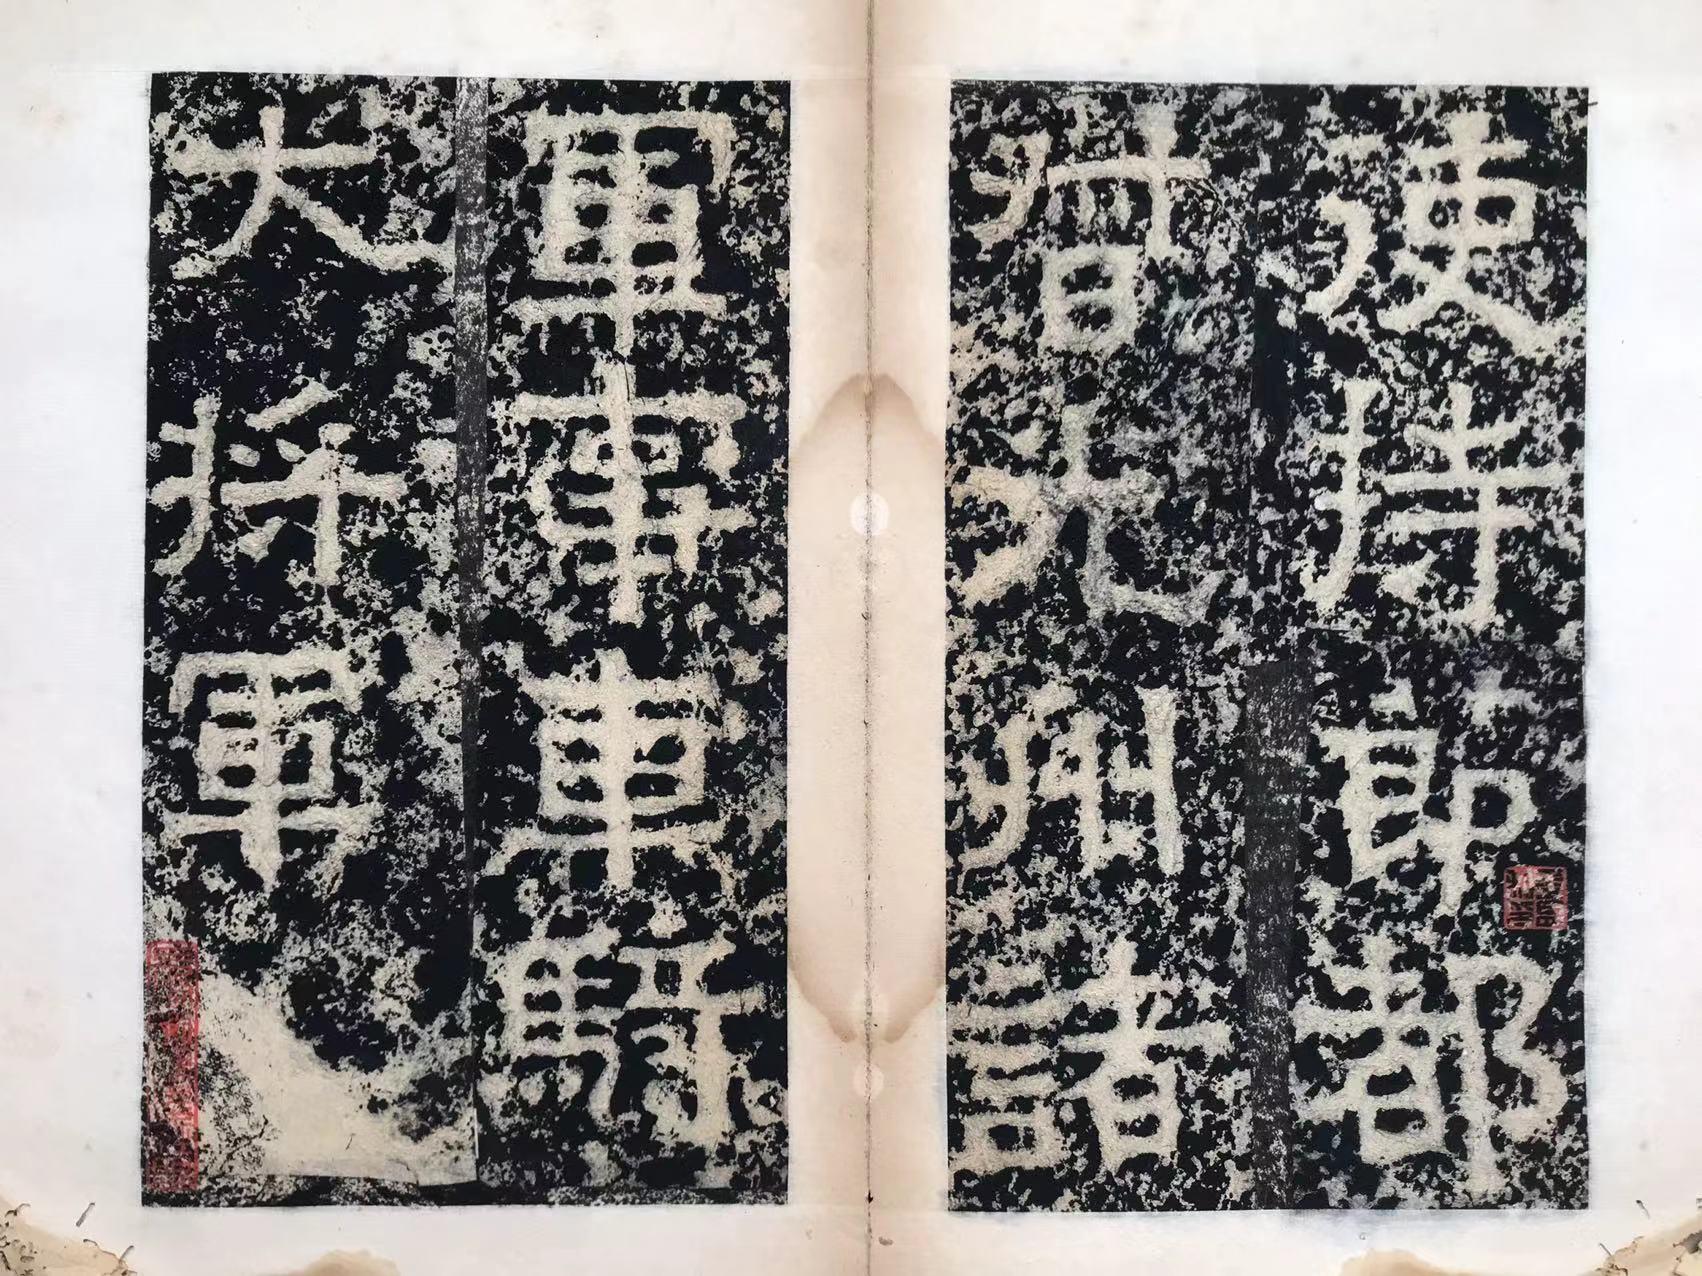 使持節都
督沇州諸
軍事車騎
大將軍